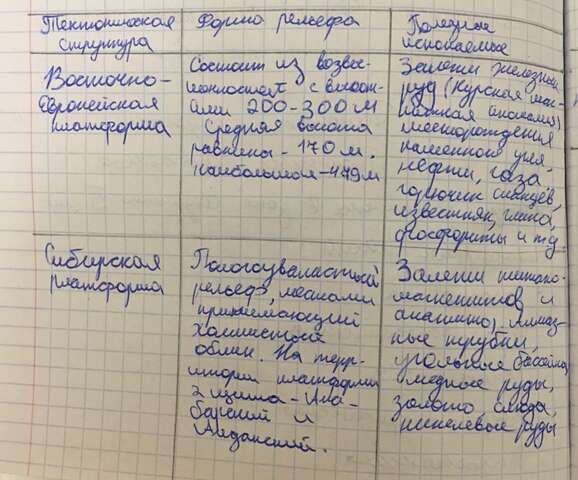 Тектоническая
структура
Форма рельефа
Полезные
ископаемые
Восточно-
Европейская
платформа
Состоит из возвы-
шенностей с высо-
тами 200-300 м
Средняя высота
равнины - 170 м.
Наибольшая - 479 м
Залежи железных
руд (Курская маг-
нитная аномалия)
месторождения
каменного угля,
нефти, газа,
горючих сланцев,
известняк, глина,
фосфориты и т.д.
Сибирская
платформа
Пологоувалистый
рельеф, местами
принимающий
холмистый
облик. На терр-
итории платформы
2 щита - Ана-
барский и
Алданский.
Залежи титано-
магнетитов и
апатитов, Алмаз-
ные трубки,
угольные бассейны
медные руды,
золото слюда,
никелевые руды